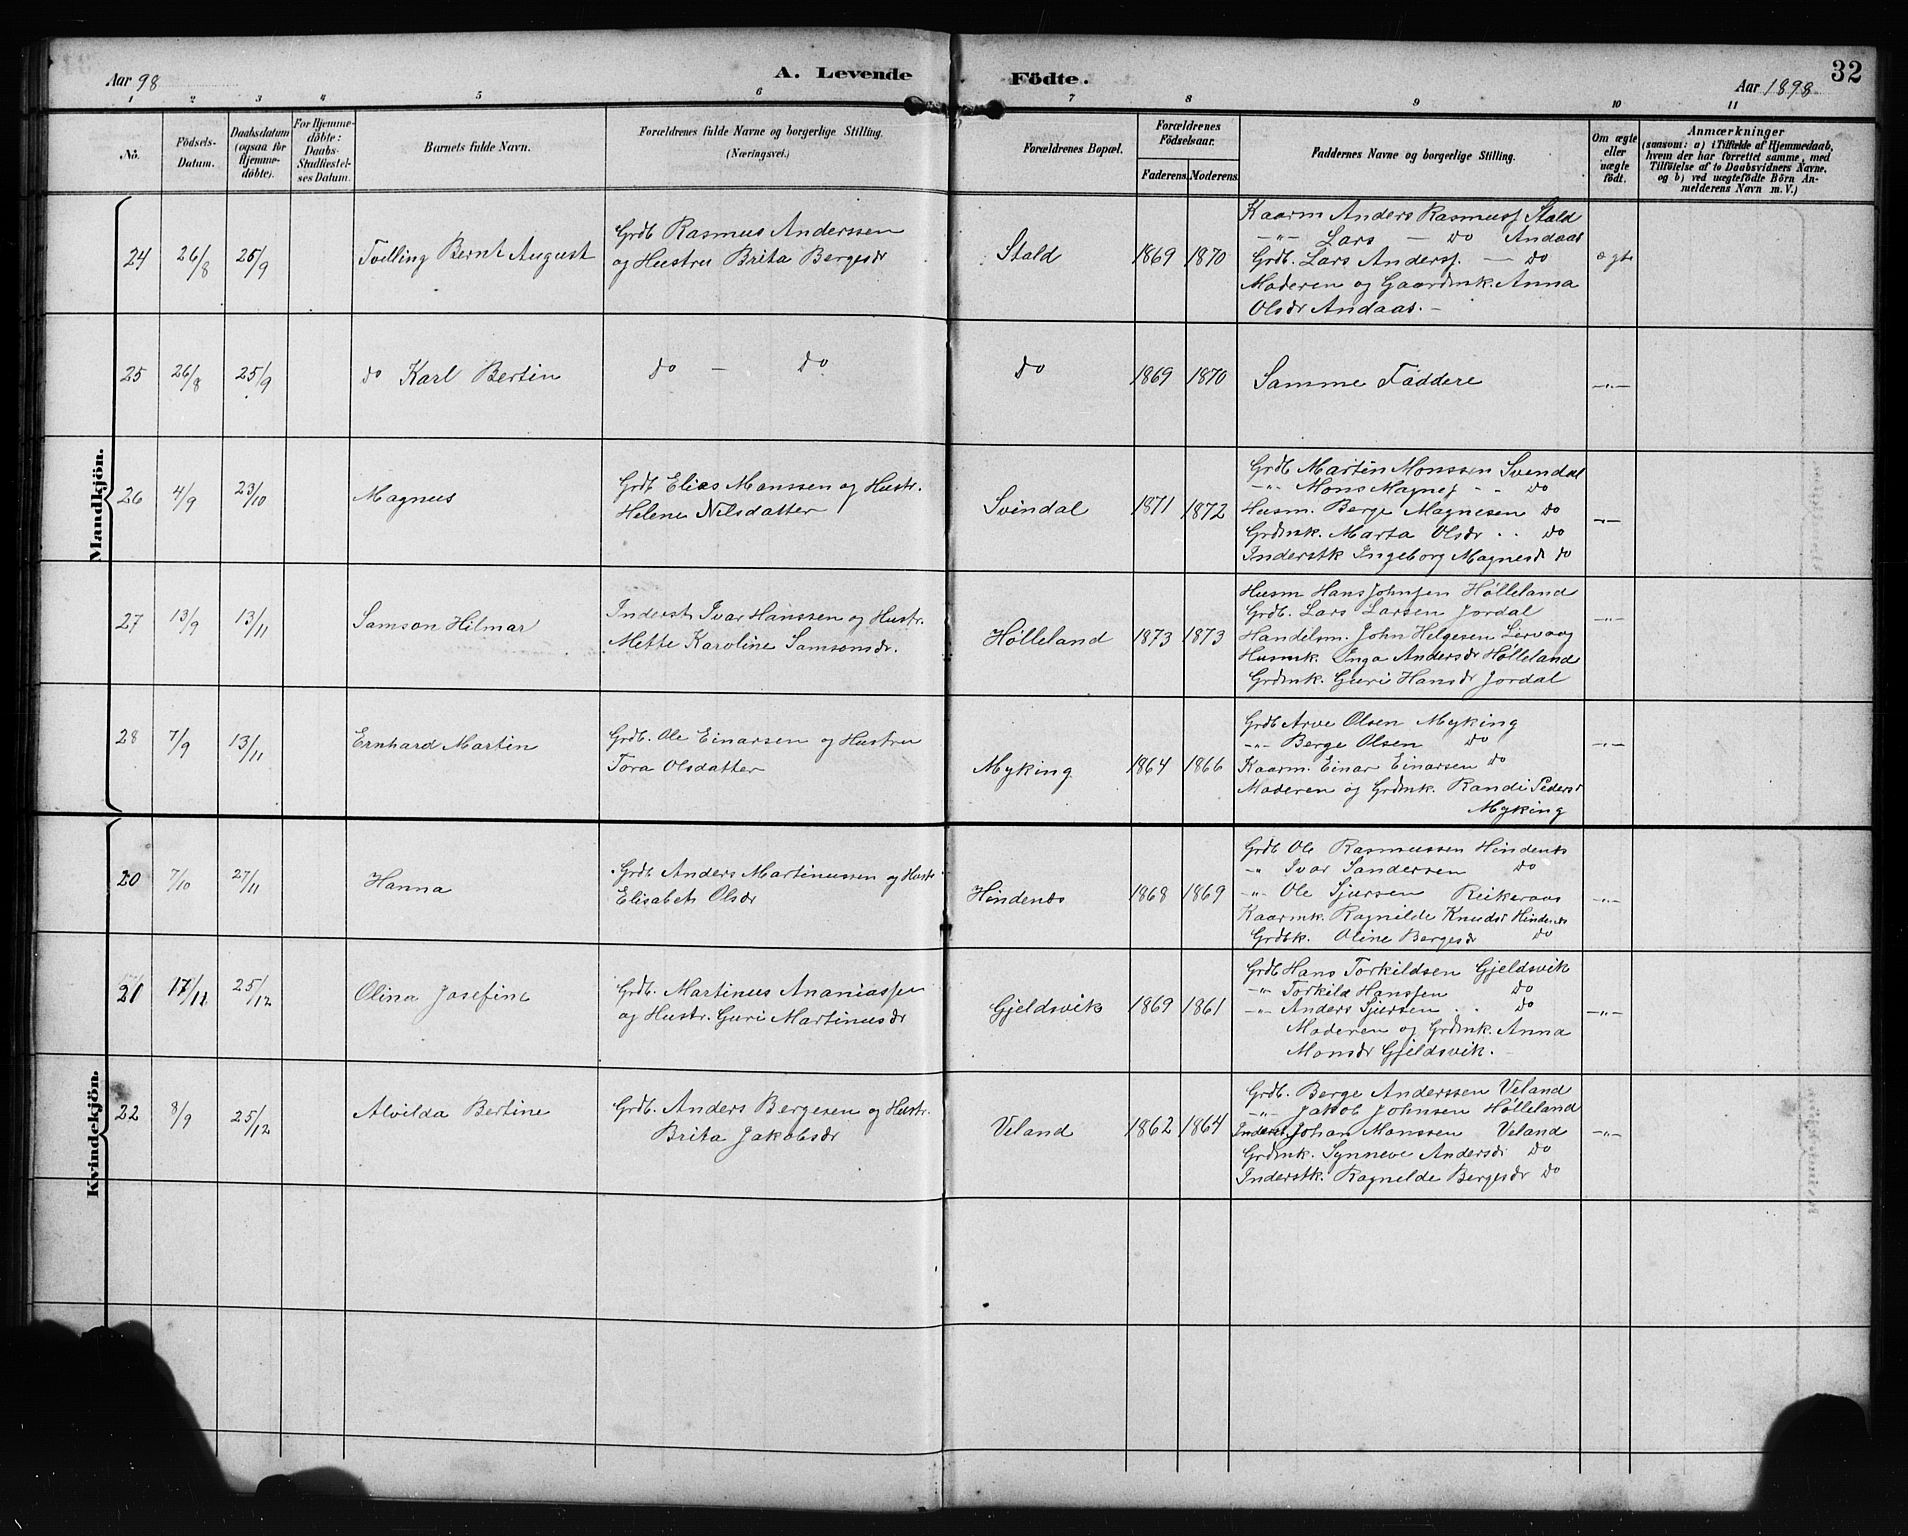 Aar 98 A. Levende Födte. Aar 1898 32
1 2 3 4 5 6 7 8 9 10 11
No. Födsels-Datum. Daabsdatum (ogsaa for Hjemmedöbte). For Hjemmedöbte: Daabs-Stadfæstelses Datum. Barnets fulde Navn. Forældrenes fulde Navne og borgerlige Stilling. (Næringsvei.) Forældrenes Bopæl. Forældrenes Födselsaar. Faderens. Moderens. Faddernes Navne og borgerlige Stilling. Om ægte eller uægte födt. Anmærkninger (saasom: a) i Tilfælde af Hjemmedaab, hvem der har forrettet samme, med Tilföielse af to Daabsvidners Navne, og b) ved uægtefödte Börn Anmelderens Navn m. V.)
Mandkjön.
24 26/8 25/9 Tvilling Bernt August Grdb. Rasmus Anderssen
og Hustru Brita Bergesdr Stald 1869 1870 Kaarm Anders Rasmuss Stald
-"- Lars - Do Andaas
Grdb. Lars Anderss. - Do
Moderen og Gaardmk. Anna
Olsdr Andaas. - ægte
25 26/8 25/9 do Karl Bertin Do - Do Do 1869 1870 Samme Faddere -"-
26 4/9 23/10 Magnus Grdb Elias Monssen og Hustr.
Helene Nilsdatter Svindal 1871 1872 Grdb Martin Monssen Svendal
-"- Mons Magnes - - Do
Husm. Berge Magnesen Do
Grdmk. Marta Olsdr . . Do
Inderstk Ingeborg Magnesd Do -"-
27 13/9 13/11 Samson Hilmar Inderst Ivar Hanssen og Hustr.
Mette Karoline Samsonsdr. Hølleland 1873 1873 Husm Hans Johnsen Hølleland
Grdb. Lars Larsen Jordal
Handelsm. John Helgesen Leirvaag
Husmk. Inga Andersdr Hølleland
Grdmk. Guri Hansdr Jordal -"-
28 7/9 13/11 Ernhard Martin Grdb. Ole Einarsen og Hustru
Tora Olsdatter Myking 1864 1866 Grdb Arve Olsen Myking
-"- Berge Olsen Do
Kaarm. Einar Einarsen Do
Moderen og Grdmk. Randi Pedersd
Myking -"-
Kvindekjön.
20 7/10 27/11 Hanna Grdb Anders Martinussen og Hustr
Elisabet Olsdr Hindenes 1868 1869 Grdb Ole Rasmussen Hindenes
" Ivar Sandersen Do
-"- Ole Sjursen Reikeraas
Kaarmk. Ragnilde Knudsd Hindenes
Grdbk. Oline Bergesdr Do -"-
21 17/11 25/12 Olina Josefine Grdb. Martinus Ananiassen
og Hustr. Guri Martinusdr Gjeldsvik 1869 1861 Grdb Hans Torkildsen Gjeldsvik
-"- Torkild Hanssen Do
-"- Anders Sjursen . . Do
Moderen og Grdmk. Anna
Monsdr Gjeldsvik. -"-
22 8/9 25/12 Alvilda Bertine Grdb. Anders Bergesen og Hustr.
Brita Jakobsdr Veland 1862 1864 Grdb. Berge Anderssen Veland
-"- Jakob Johnsen Hølleland
Inderst. Johan Monssen Veland
Grdmk. Synneve Andersd Do
Inderstk. Ragnelde Bergesdr Do -"-